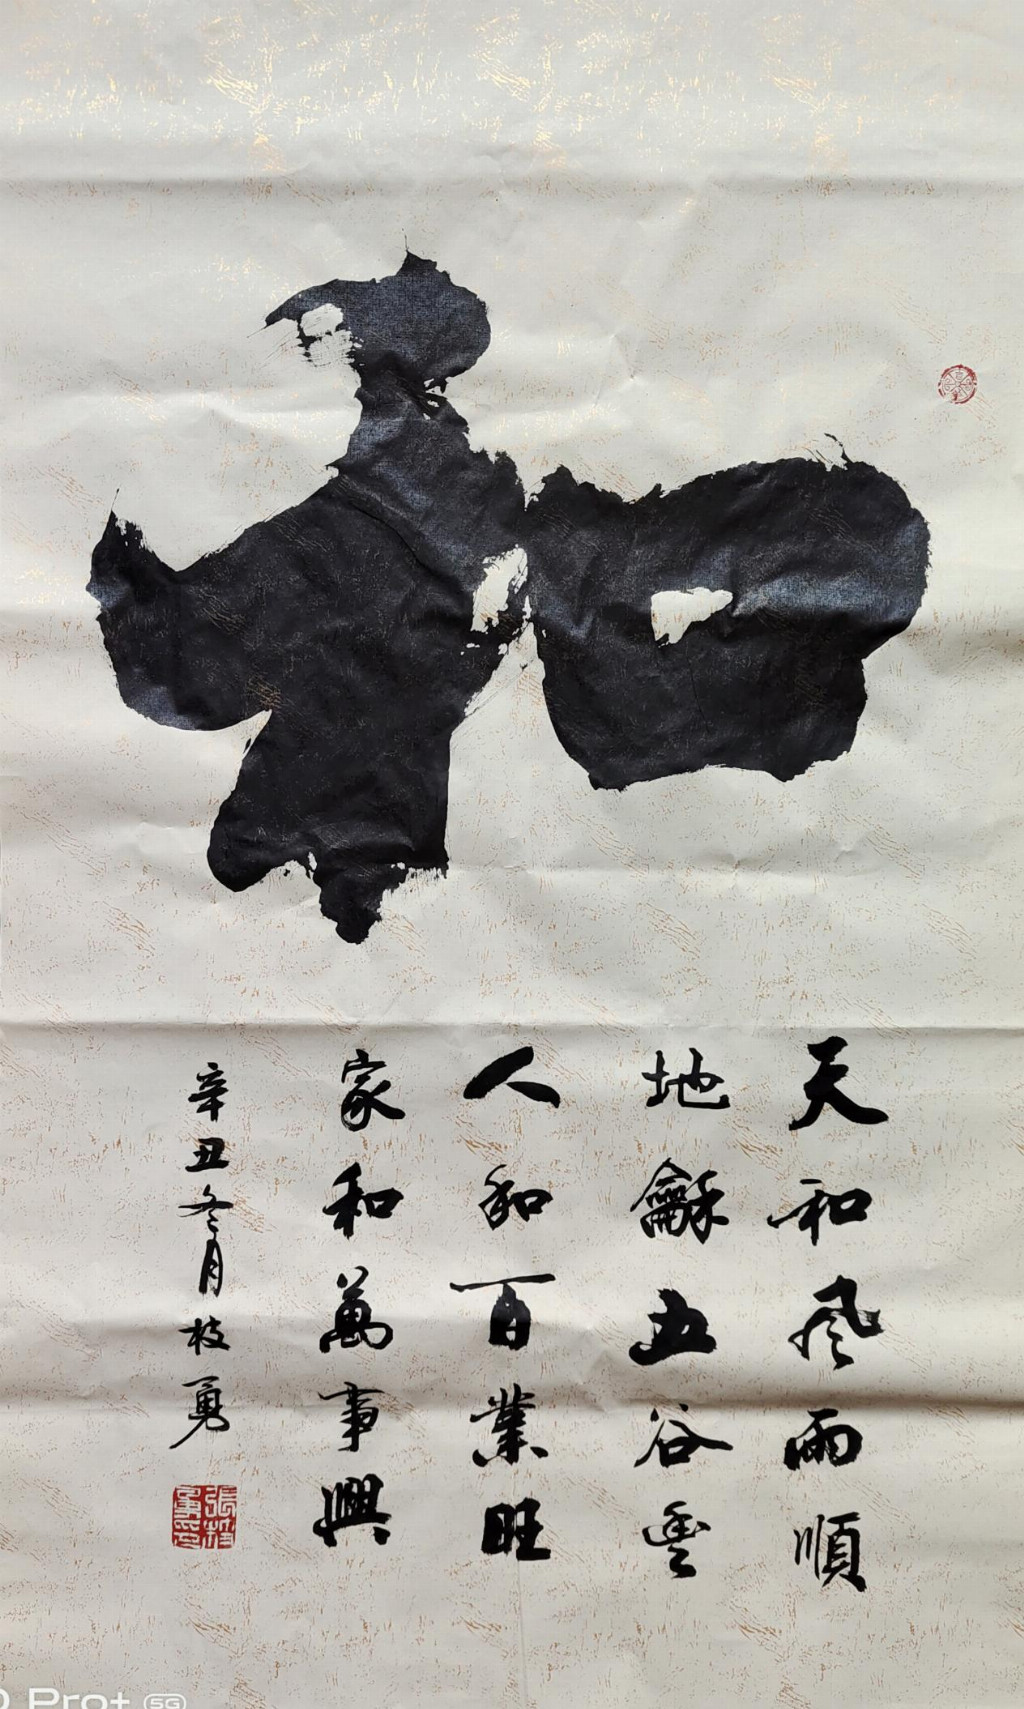 和
天和风雨順
地龢五谷豊
人和百業旺
家和萬事興
辛丑冬月枝勇
張枝勇印
Pro+ 5G